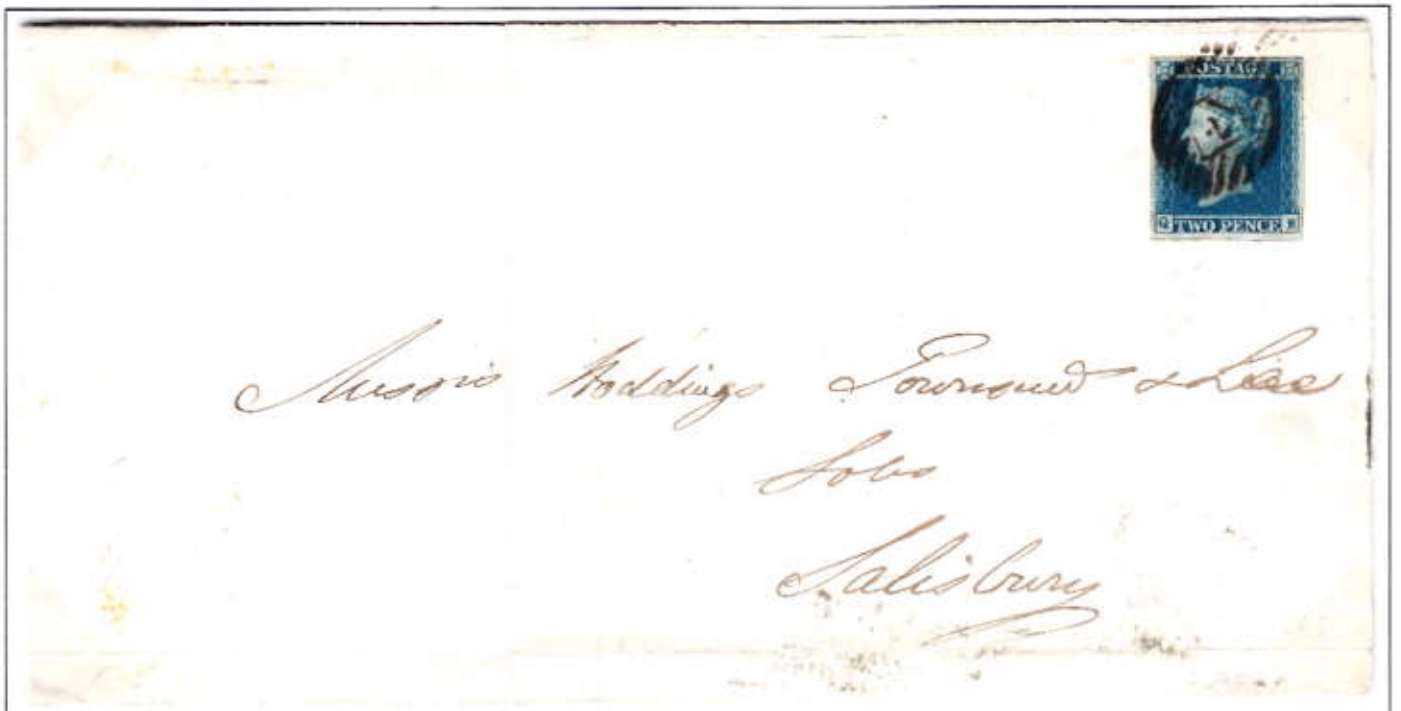 POSTAGE
TWO PENCE
Messrs Hoddings Townsend & Lee
Solrs
Salisbury